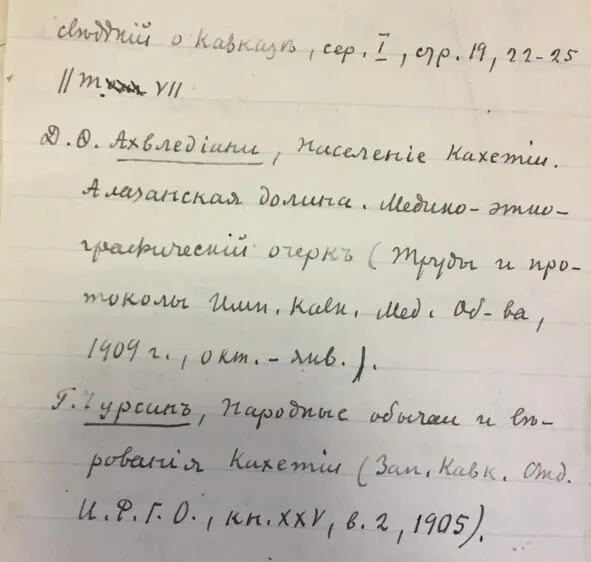 свѣдѣній о Кавказѣ, сер. I, стр. 19, 22-25
// т. VII
Д. Ѳ. Ахвледіани, Населеніе Кахетіи.
Алазанская долина. Медико-этно-
графическій очеркъ (Труды и про-
токолы Имп. Кавк. Мед. Об-ва,
1909 г., окт. - янв.).
Г. Чурсинъ, Народные обычаи и вѣ-
рованія Кахетіи (Зап. Кавк. Отд.
И. Р. Г. О., кн. XXV, в. 2, 1905).